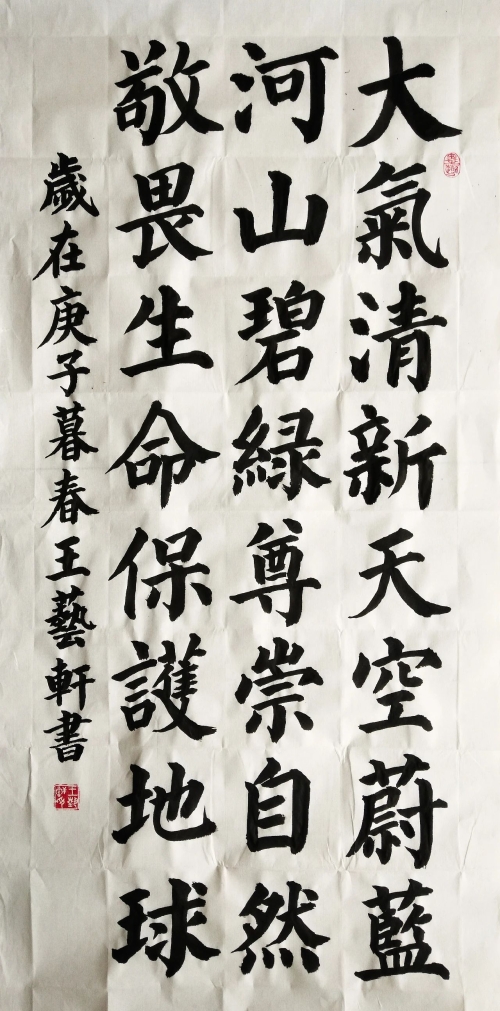 大氣清新天空蔚藍
河山碧緑尊崇自然
敬畏生命保護地球
歲在庚子暮春王藝軒書